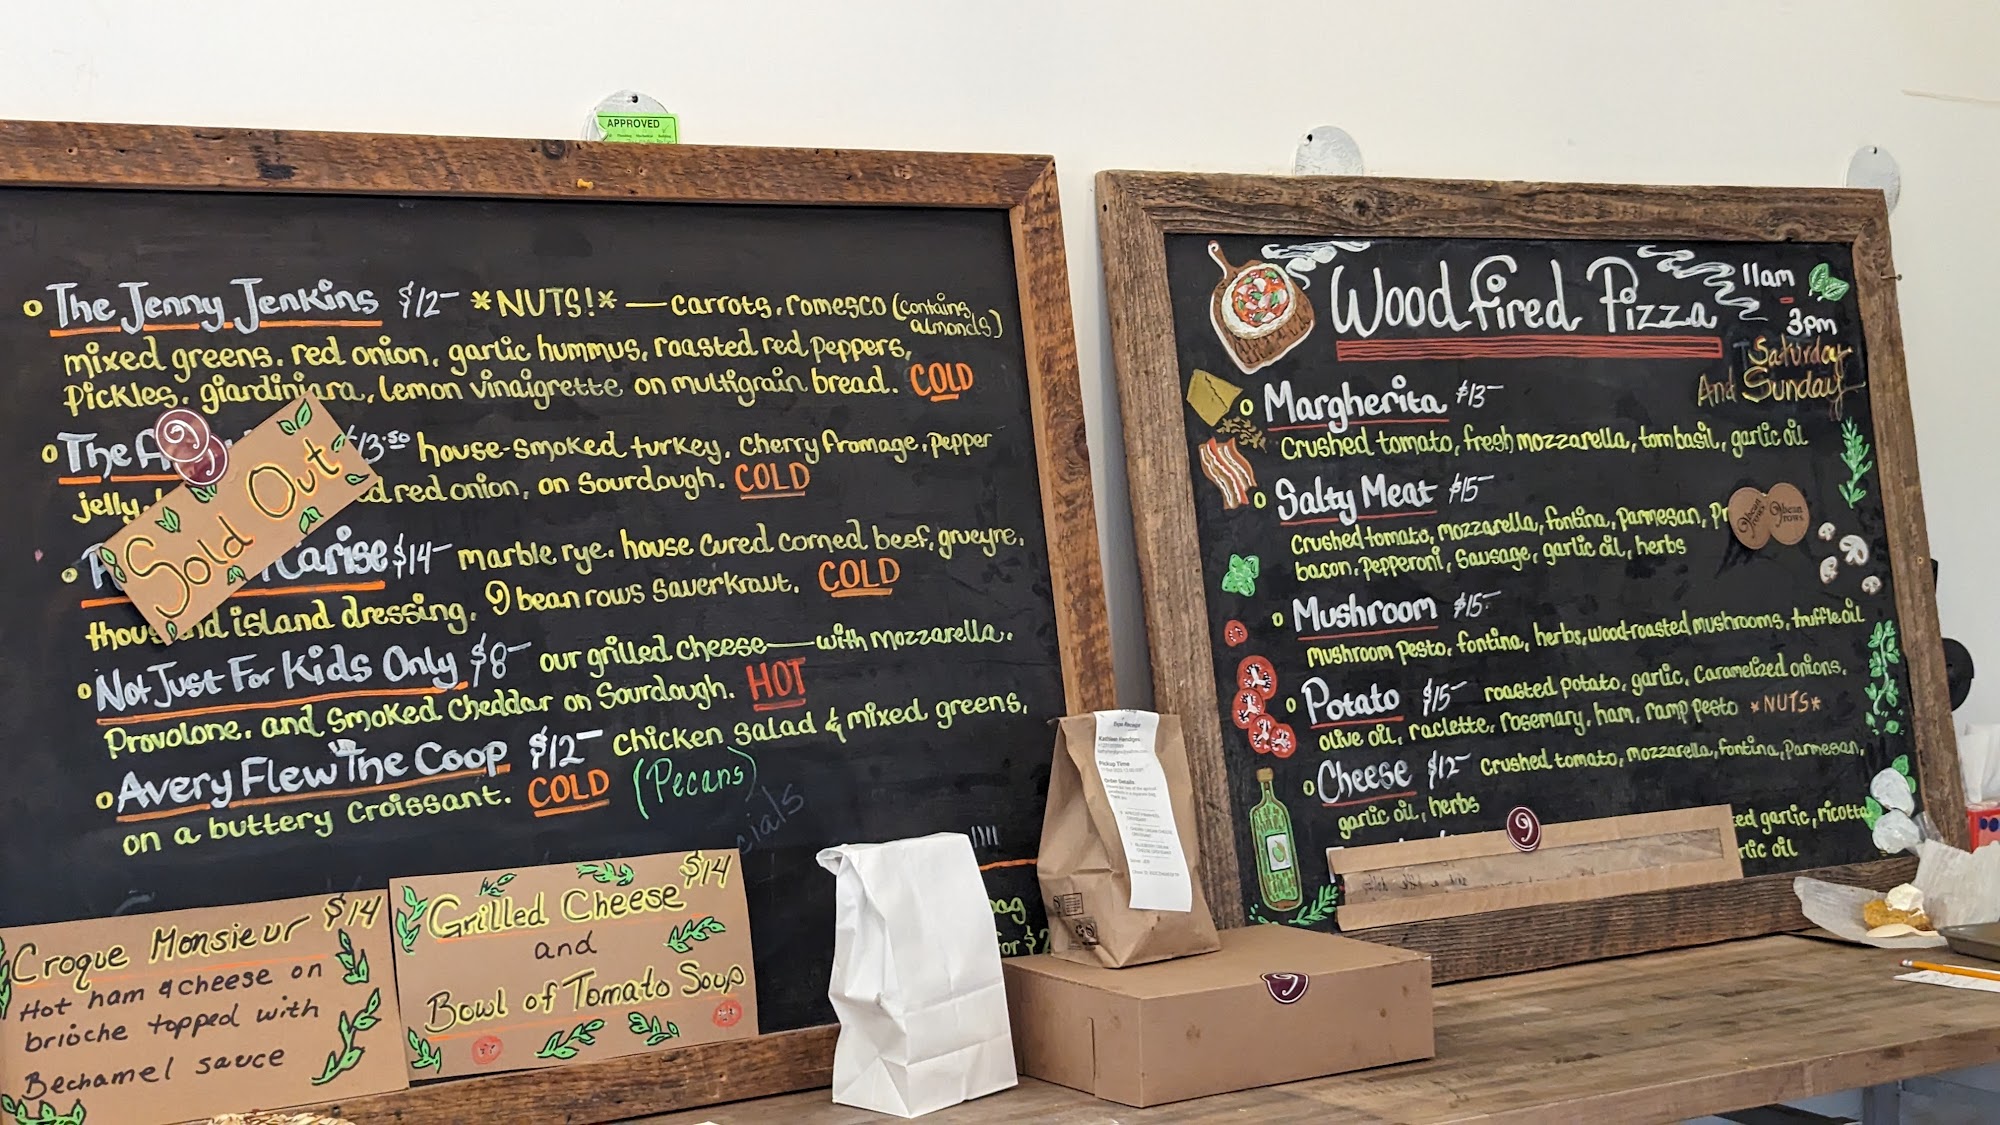 APPROVED
The Jenny Jenkins $12 *NUTS!* — carrots, romesco (contains almonds)
mixed greens, red onion, garlic hummus, roasted red peppers,
Pickles, giardiniara, lemon vinaigrette on multigrain bread. COLD
The $13.50 house-smoked turkey, cherry fromage, pepper
jelly, red onion, on Sourdough. COLD
Sold Out
Karise $14 marble rye, house cured corned beef, grueyre,
thousand island dressing, 9 bean rows Sauerkraut. COLD
Not Just For Kids Only $8 our grilled cheese — with mozzarella,
Provolone, and Smoked Cheddar on Sourdough. HOT
Avery Flew The Coop $12 chicken salad & mixed greens,
on a buttery Croissant. COLD (Pecans)
Croque Monsieur $14
Hot ham & cheese on
brioche topped with
Bechamel sauce
Grilled Cheese $14
and
Bowl of Tomato Soup
bag
for $2
Pickup Time
Order Details
Wood fired Pizza 11am - 3pm
Saturday
And Sunday
Margherita $13
Crushed tomato, fresh mozzarella, torn basil, garlic oil
Salty Meat $15
Crushed tomato, mozzarella, fontina, parmesan,
bacon, pepperoni, Sausage, garlic oil, herbs
9 bean rows
9 bean rows
Mushroom $15
Mushroom pesto, fontina, herbs, wood-roasted mushrooms, truffle oil
Potato $15 roasted potato, garlic, caramelized onions,
olive oil, raclette, rosemary, ham, ramp pesto *NUTS*
Cheese $12 Crushed tomato, mozzarella, fontina, Parmesan,
garlic oil, herbs
garlic, ricotta
oil
9
9